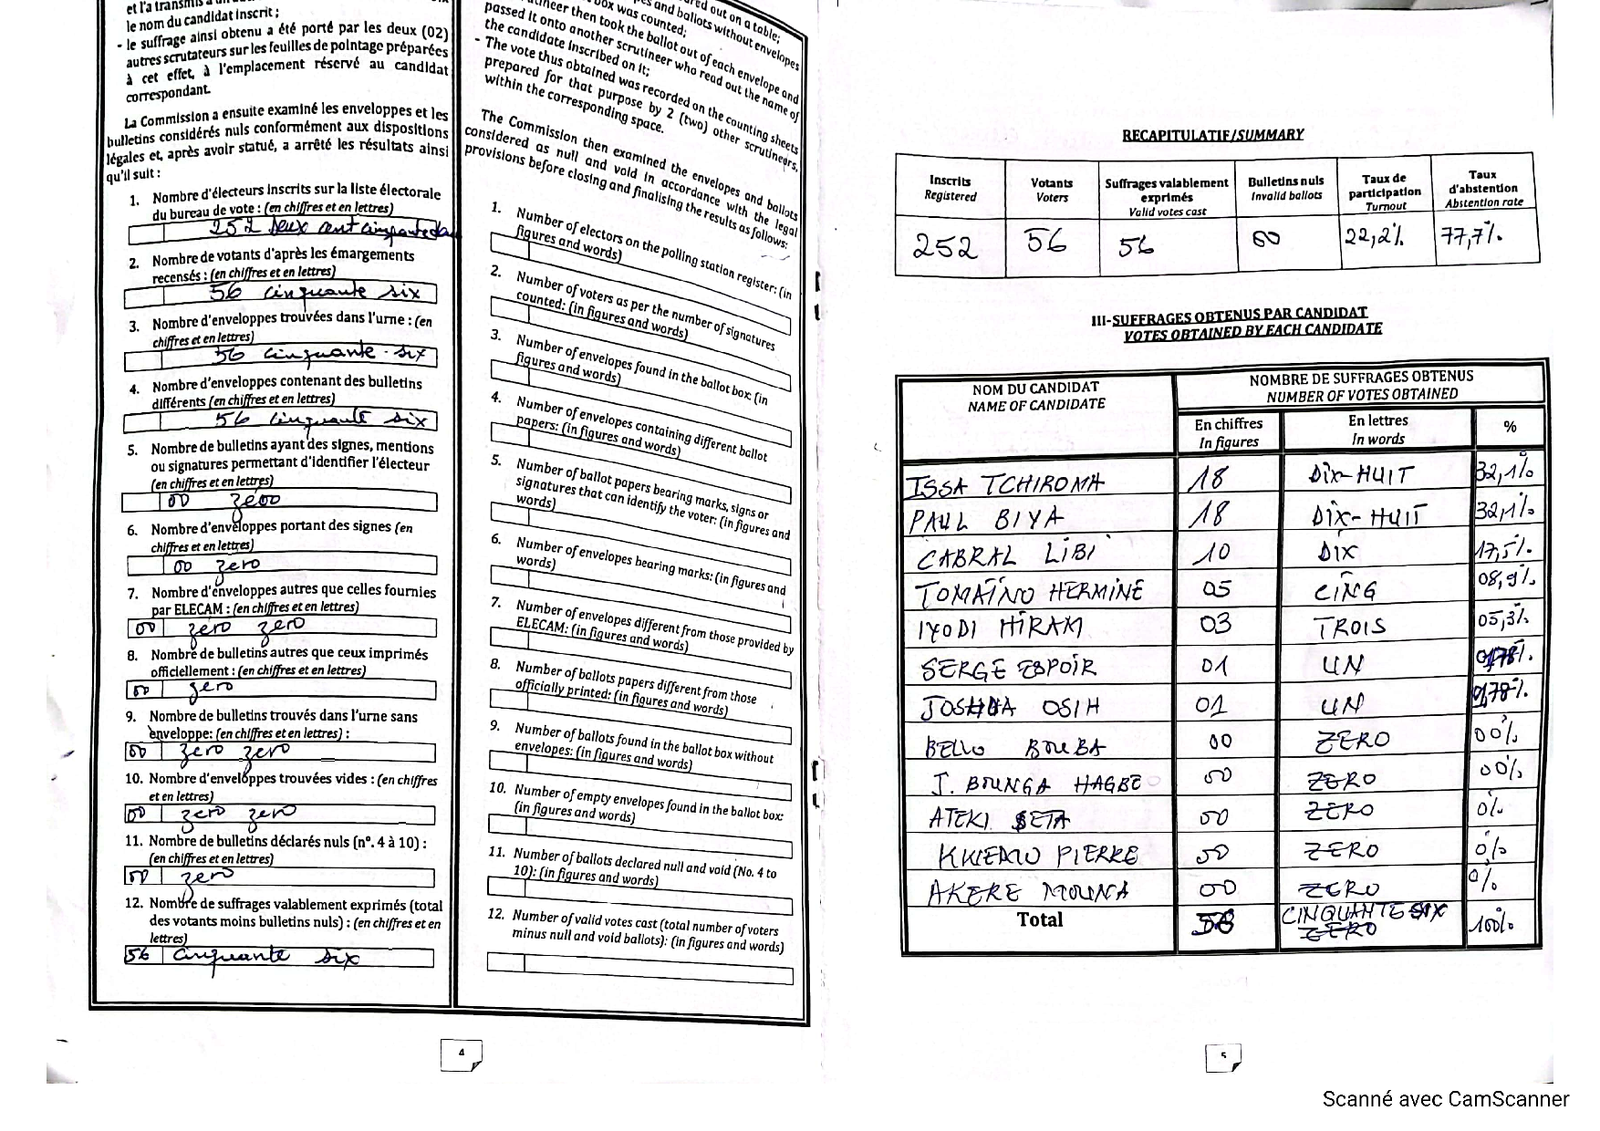 et l'a transmis à un
le nom du candidat inscrit ;
- le suffrage ainsi obtenu a été porté par les deux (02)
autres scrutateurs sur les feuilles de pointage préparées
à cet effet, à l'emplacement réservé au candidat
correspondant.
La Commission a ensuite examiné les enveloppes et les
bulletins considérés nuls conformément aux dispositions
légales et, après avoir statué, a arrêté les résultats ainsi
qu'il suit :
1. Nombre d'électeurs inscrits sur la liste électorale
du bureau de vote : (en chiffres et en lettres)
252 deux cent cinquante
2. Nombre de votants d'après les émargements
recensés : (en chiffres et en lettres)
56 cinquante six
3. Nombre d'enveloppes trouvées dans l'urne : (en
chiffres et en lettres)
56 cinquante-six
4. Nombre d'enveloppes contenant des bulletins
différents (en chiffres et en lettres)
56 cinquante six
5. Nombre de bulletins ayant des signes, mentions
ou signatures permettant d'identifier l'électeur
(en chiffres et en lettres)
00 zéro
6. Nombre d'enveloppes portant des signes (en
chiffres et en lettres)
00 zero
7. Nombre d'enveloppes autres que celles fournies
par ELECAM : (en chiffres et en lettres)
00 zero zero
8. Nombre de bulletins autres que ceux imprimés
officiellement : (en chiffres et en lettres)
00 zero
9. Nombre de bulletins trouvés dans l'urne sans
enveloppe: (en chiffres et en lettres) :
00 zero zero
10. Nombre d'enveloppes trouvées vides : (en chiffres
et en lettres)
00 zero zero
11. Nombre de bulletins déclarés nuls (n°. 4 à 10) :
(en chiffres et en lettres)
00 zero
12. Nombre de suffrages valablement exprimés (total
des votants moins bulletins nuls) : (en chiffres et en
lettres)
56 cinquante six
out on a table;
and ballots without envelopes
box was counted;
then took the ballot out of each envelope and
passed it onto another scrutineer who read out the name of
the candidate inscribed on it;
- The vote thus obtained was recorded on the counting sheets
prepared for that purpose by 2 (two) other scrutineers,
within the corresponding space.
The Commission then examined the envelopes and ballots
considered as null and void in accordance with the legal
provisions before closing and finalising the results as follows:
1. Number of electors on the polling station register: (in
figures and words)
2. Number of voters as per the number of signatures
counted: (in figures and words)
3. Number of envelopes found in the ballot box: (in
figures and words)
4. Number of envelopes containing different ballot
papers: (in figures and words)
5. Number of ballot papers bearing marks, signs or
signatures that can identify the voter: (in figures and
words)
6. Number of envelopes bearing marks: (in figures and
words)
7. Number of envelopes different from those provided by
ELECAM: (in figures and words)
8. Number of ballots papers different from those
officially printed: (in figures and words)
9. Number of ballots found in the ballot box without
envelopes: (in figures and words)
10. Number of empty envelopes found in the ballot box:
(in figures and words)
11. Number of ballots declared null and void (No. 4 to
10): (in figures and words)
12. Number of valid votes cast (total number of voters
minus null and void ballots): (in figures and words)
4
RECAPITULATIF/SUMMARY
Inscrits Registered Votants Voters Suffrages valablement exprimés Valid votes cast Bulletins nuls Invalid ballots Taux de participation Turnout Taux d'abstention Abstention rate
252 56 56 00 22,2% 77,7%
III-SUFFRAGES OBTENUS PAR CANDIDAT
VOTES OBTAINED BY EACH CANDIDATE
NOM DU CANDIDAT NOMBRE DE SUFFRAGES OBTENUS
NAME OF CANDIDATE NUMBER OF VOTES OBTAINED
En chiffres En lettres %
In figures In words
ISSA TCHIROMA 18 DIX-HUIT 32,1%
PAUL BIYA 18 DIX-HUIT 32,1%
CABRAL LIBI 10 DIX 17,5%
TOMAÏNO HERMINE 05 CING 08,9%
IYODI HIRAM 03 TROIS 05,3%
SERGE ESPOIR 01 UN
JOSHUA OSIH 01 UN 0,78%
BELLO BOUBA 00 ZERO 00%
J. BOUNGA HAGBE 00 ZERO 00%
ATEKI SETA 00 ZERO 0%
KWEMO PIERRE 00 ZERO 0%
AKERE MOUNA 00 ZERO 0%
Total 56 CINQUANTE SIX 100%
5
Scanné avec CamScanner